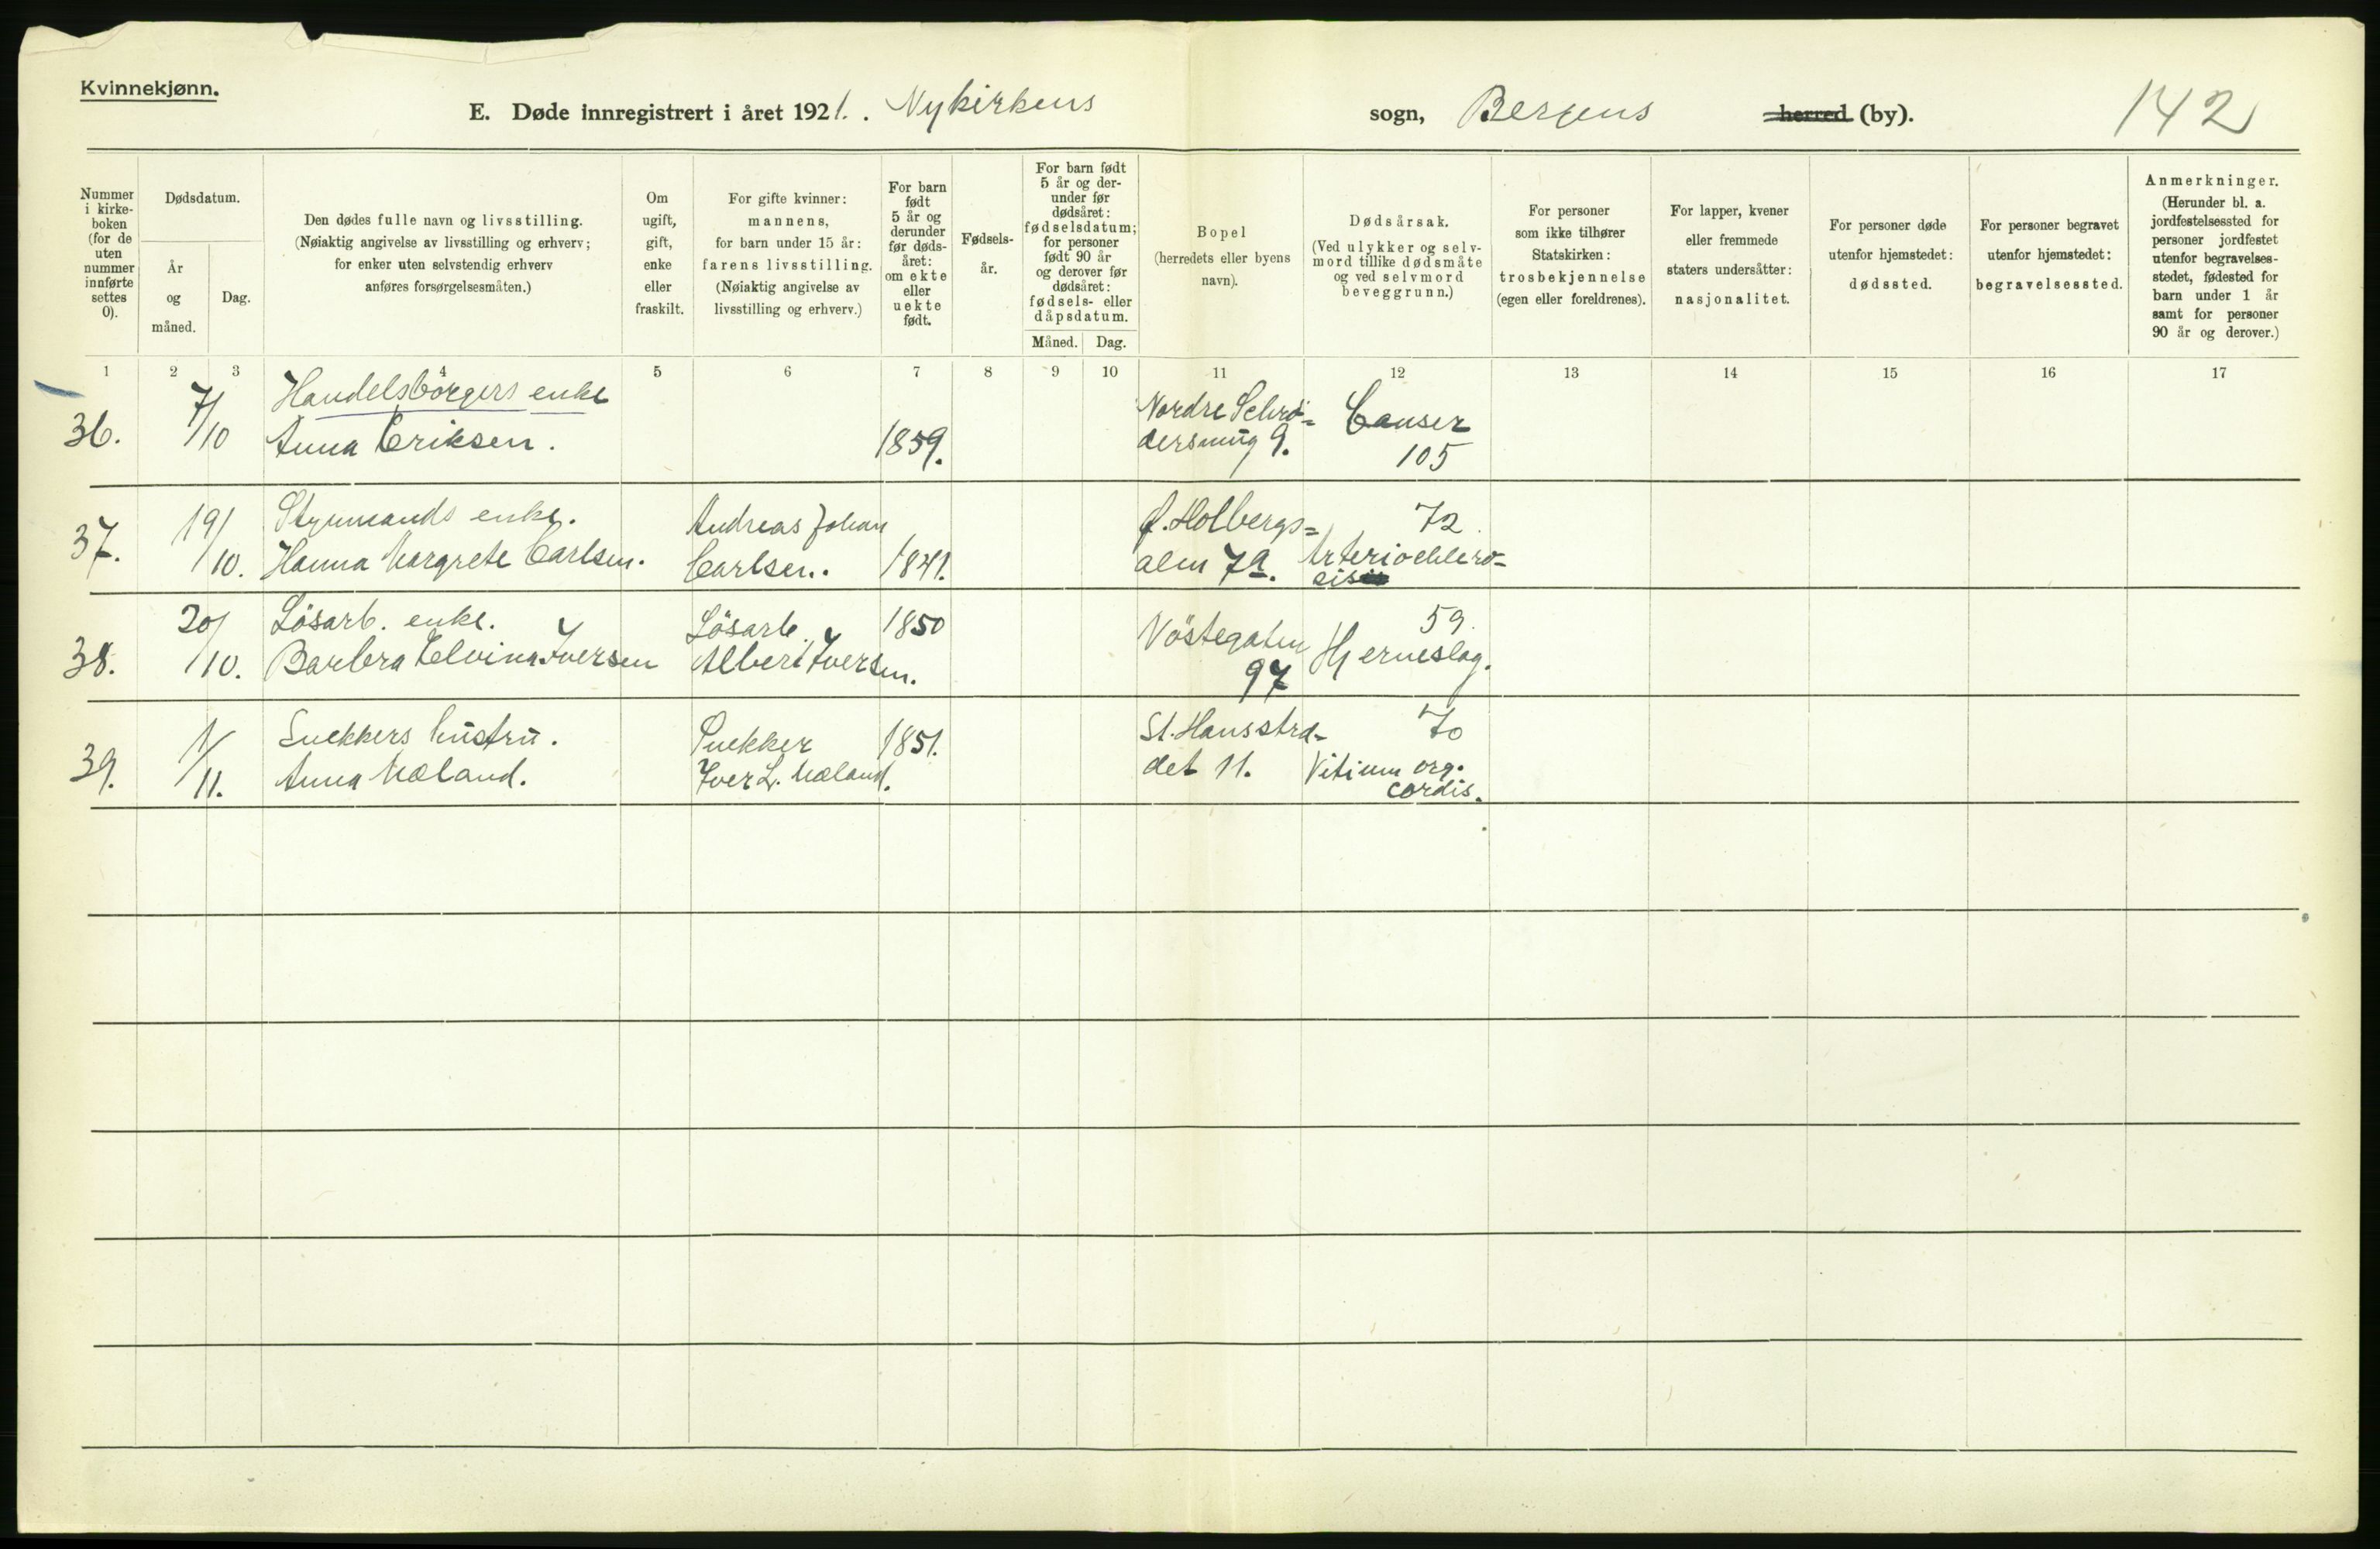 Kvinnekjønn.
E. Døde innregistrert i året 1921. Nykirkens sogn, Bergens herred (by).
142
Nummer
i kirke-
boken
(for de
uten
nummer
innførte
settes
0).
Dødsdatum.
År
og
måned.
Dag.
Den dødes fulle navn og livsstilling.
(Nøiaktig angivelse av livsstilling og erhverv;
for enker uten selvstendig erhverv
anføres forsørgelsesmåten.)
Om
ugift,
gift,
enke
eller
fraskilt.
For gifte kvinner:
mannens,
for barn under 15 år:
farens livsstilling.
(Nøiaktig angivelse av
livsstilling og erhverv.)
For barn
født
5 år og
derunder
før døds-
året:
om ekte
eller
uekte
født.
Fødsels-
år.
For barn født
5 år og der-
under før
dødsåret:
fødselsdatum;
for personer
født 90 år
og derover før
dødsåret:
fødsels- eller
dåpsdatum.
Måned. Dag.
Bopel
(herredets eller byens
navn).
Dødsårsak.
(Ved ulykker og selv-
mord tillike dødsmåte
og ved selvmord
beveggrunn.)
For personer
som ikke tilhører
Statskirken:
trosbekjennelse
(egen eller foreldrenes).
For lapper, kvener
eller fremmede
staters undersåtter:
nasjonalitet.
For personer døde
utenfor hjemstedet:
dødssted.
For personer begravet
utenfor hjemstedet:
begravelsessted.
Anmerkninger.
(Herunder bl. a.
jordfestelsessted for
personer jordfestet
utenfor begravelses-
stedet, fødested for
barn under 1 år
samt for personer
90 år og derover.)
1 2 3 4 5 6 7 8 9 10 11 12 13 14 15 16 17
36.
7/10
Handelsborgers enke
Anna Eriksen.
1859.
Nordre Schrö=
dersmug 9.
Canser
105
37.
19/10.
Styrmands enke.
Hanna Margrete Carlsen.
Andreas Johan
Carlsen.
1841.
L. Holbergs=
alm 7a.
72.
Arterioclero=
sis
38.
20/10.
Lösarb. enke.
Barbra Elvina Iversen
Lösarb.
Albert Iversen.
1850
Nöstegaten
97
59.
Hjerneslag.
39.
1/11.
Snekkers hustru.
Anna Mæland.
Snekker
Iver L. Mæland.
1851.
St. Hansstræ-
det 11.
70
Vitium org.
cordis.